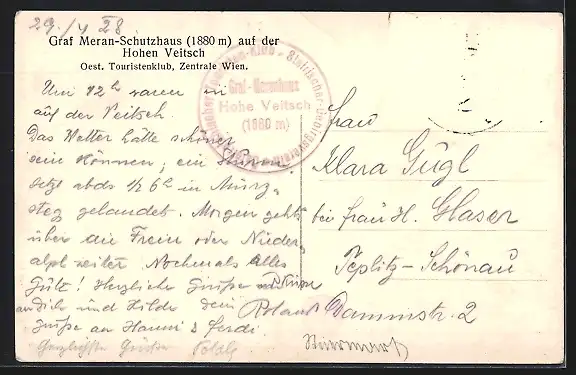 29./4 28.
Graf Meran-Schutzhaus (1880 m) auf der
Hohen Veitsch
Oest. Touristenklub, Zentrale Wien.
Graf-Meranhaus
Hohe Veitsch
(1880 m)
Um 12h waren wir
auf der Veitsch.
Das Wetter hätte schöner
sein können, ein Sturm.
Jetzt abds 1/2 6h in Mürz-
steg gelandet. Morgen geht's
über die Frein oder Nieder-
alpl weiter. Nochmals Alles
Gute! Herzliche Grüße
an Dich und Hilde Dein Roland
Grüße an Hanni & Ferdi.
Herzlichste Grüße
Frau
Klara Gügl
bei Frau H. Glaser
Teplitz-Schönau
Dammstr. 2
Steiermark